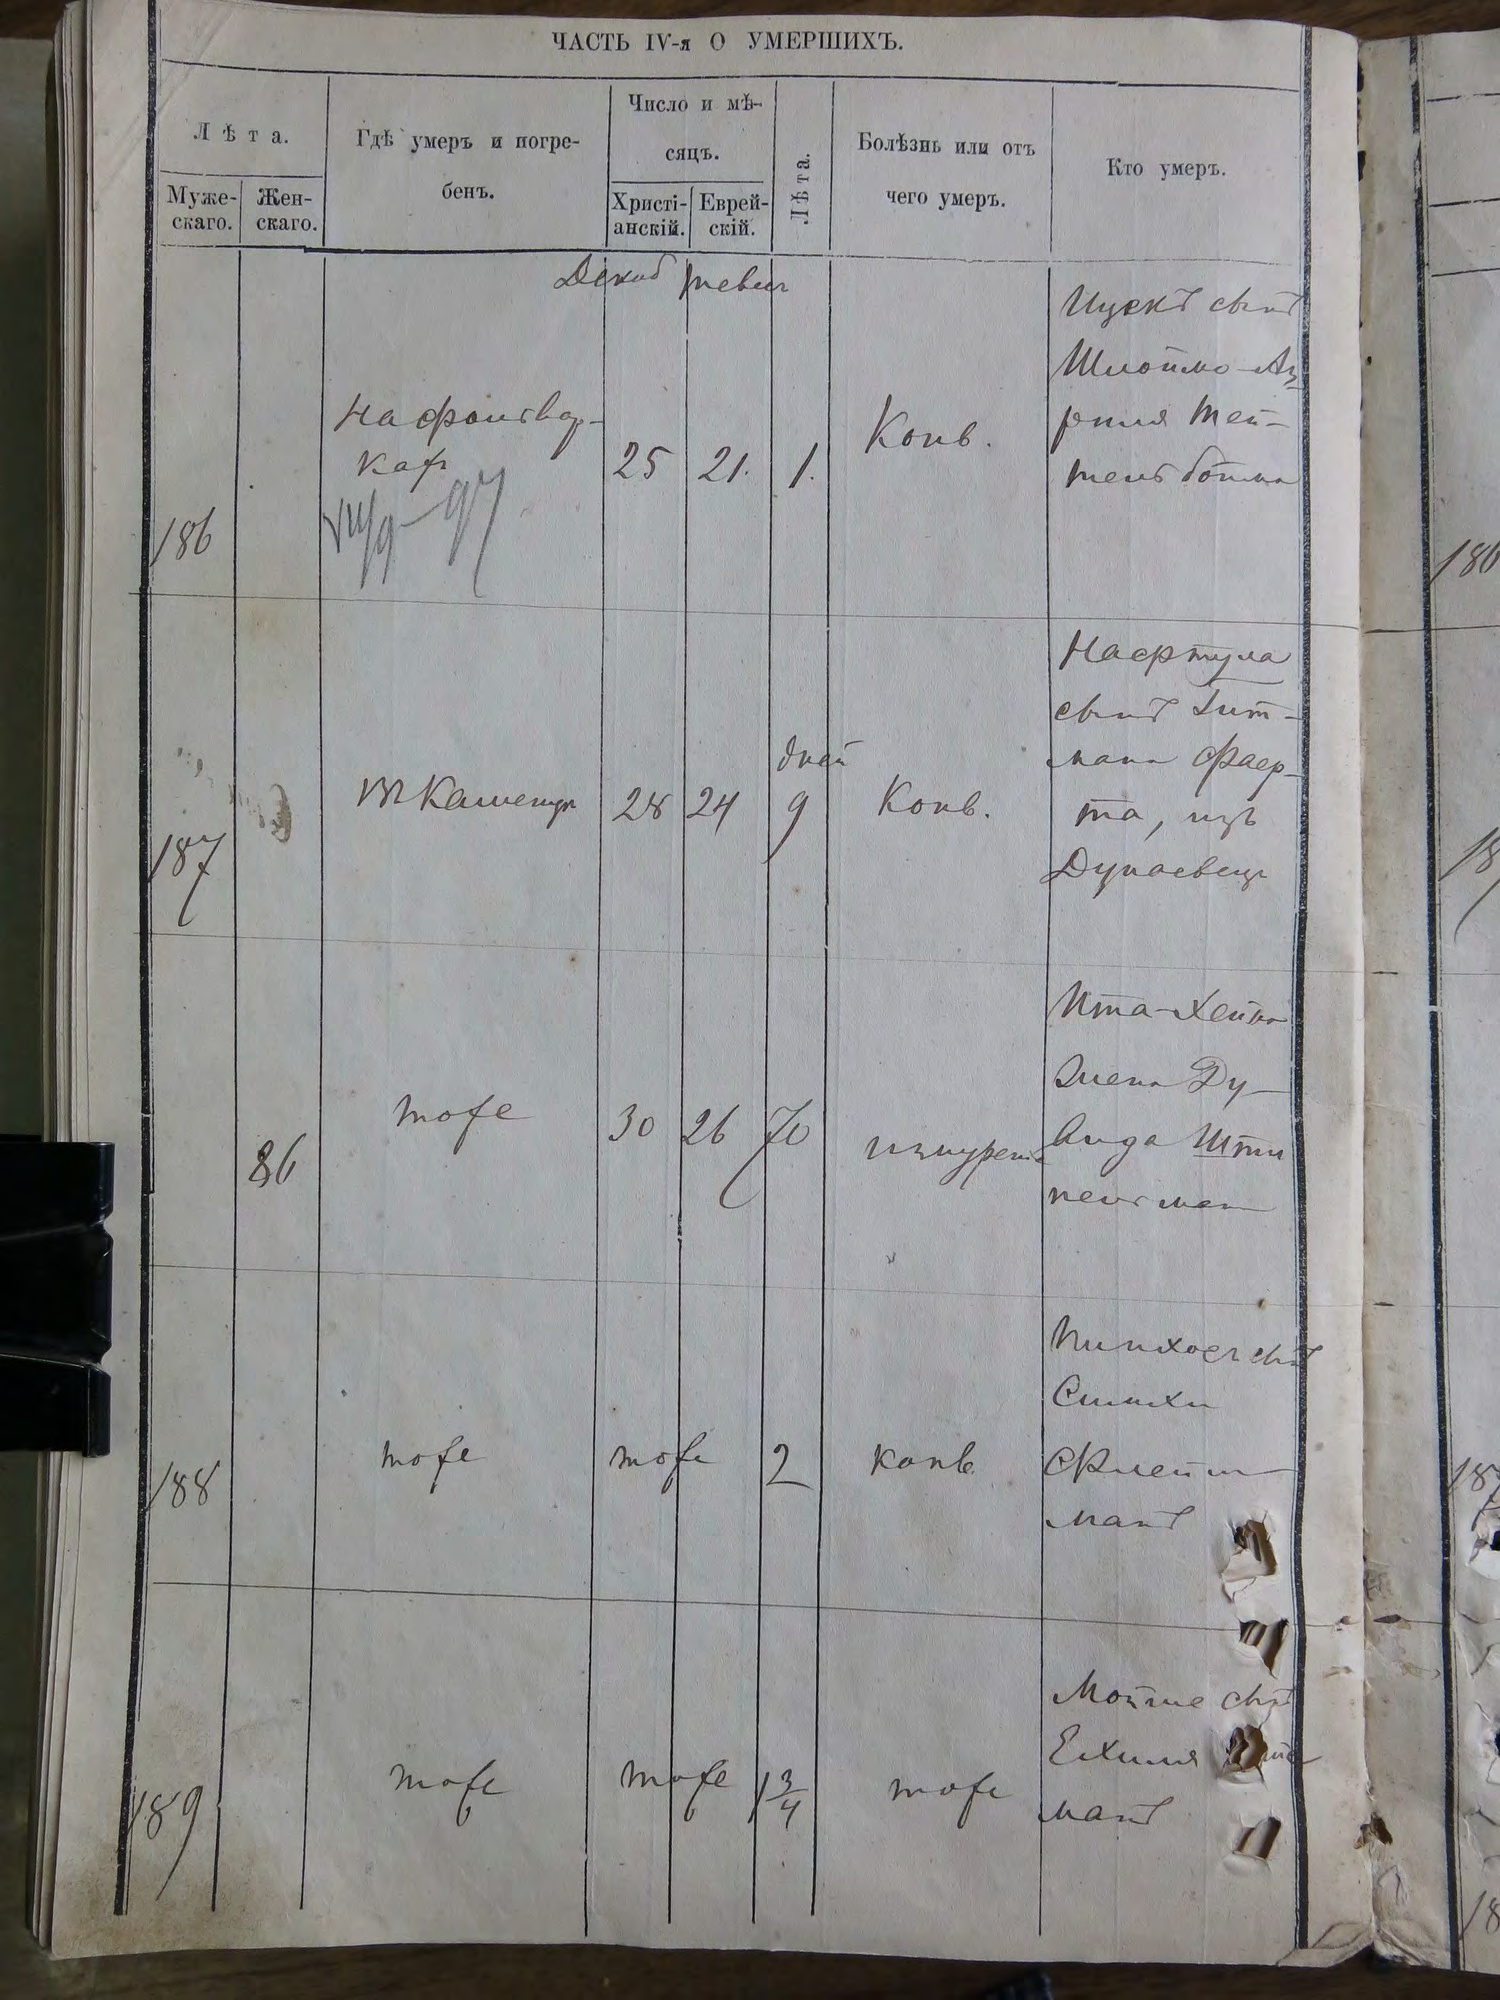 ЧАСТЬ IV-я О УМЕРШИХЪ.
Лѣта.
Муже-
скаго.
Жен-
скаго.
Гдѣ умеръ и погре-
бенъ.
Число и мѣ-
сяцъ.
Христі-
анскій.
Еврей-
скій.
Лѣта.
Болѣзнь или отъ
чего умеръ.
Кто умеръ.
Декаб тевет
186
На фольвар-
ках
VIII/9-97
25
21.
1.
Конв.
Ицекъ сынъ
Шлоймо-
тель бойма
187
Каменце
28
24
дней
9
Конв.
Нафтула
сынъ Гит-
мана Фаер-
та, изъ
Дунаевец
86
тоже
30
26
70
изнурен
Ита-Хейка
жена Ду-
вида Шти
пельман
188
тоже
тоже
2
конв
Пинхос сынъ
Симхи
Клейн
манъ
189
тоже
тоже
1 3/4
тоже
Мойше сынъ
Ехиля
манъ
186